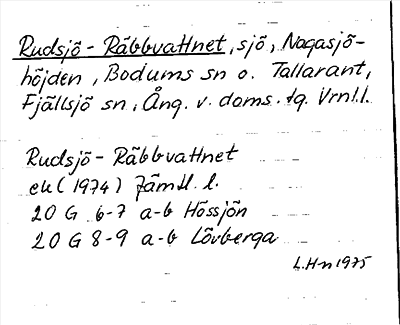 Rudsjö-Räbbvattnet, sjö, Nagasjö-
höjden, Bodums sn o. Tallarant,
Fjällsjö sn, Ång. v. doms. tg. Vrnl.l.
Rudsjö-Räbbvattnet
ek (1974) Jämtl. l.
20 G 6-7 a-b Hössjön
20 G 8-9 a-b Lövberga
L.H-n 1975